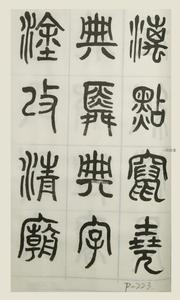 漓點竄堯
典舜典字
塗改清廟
P-223